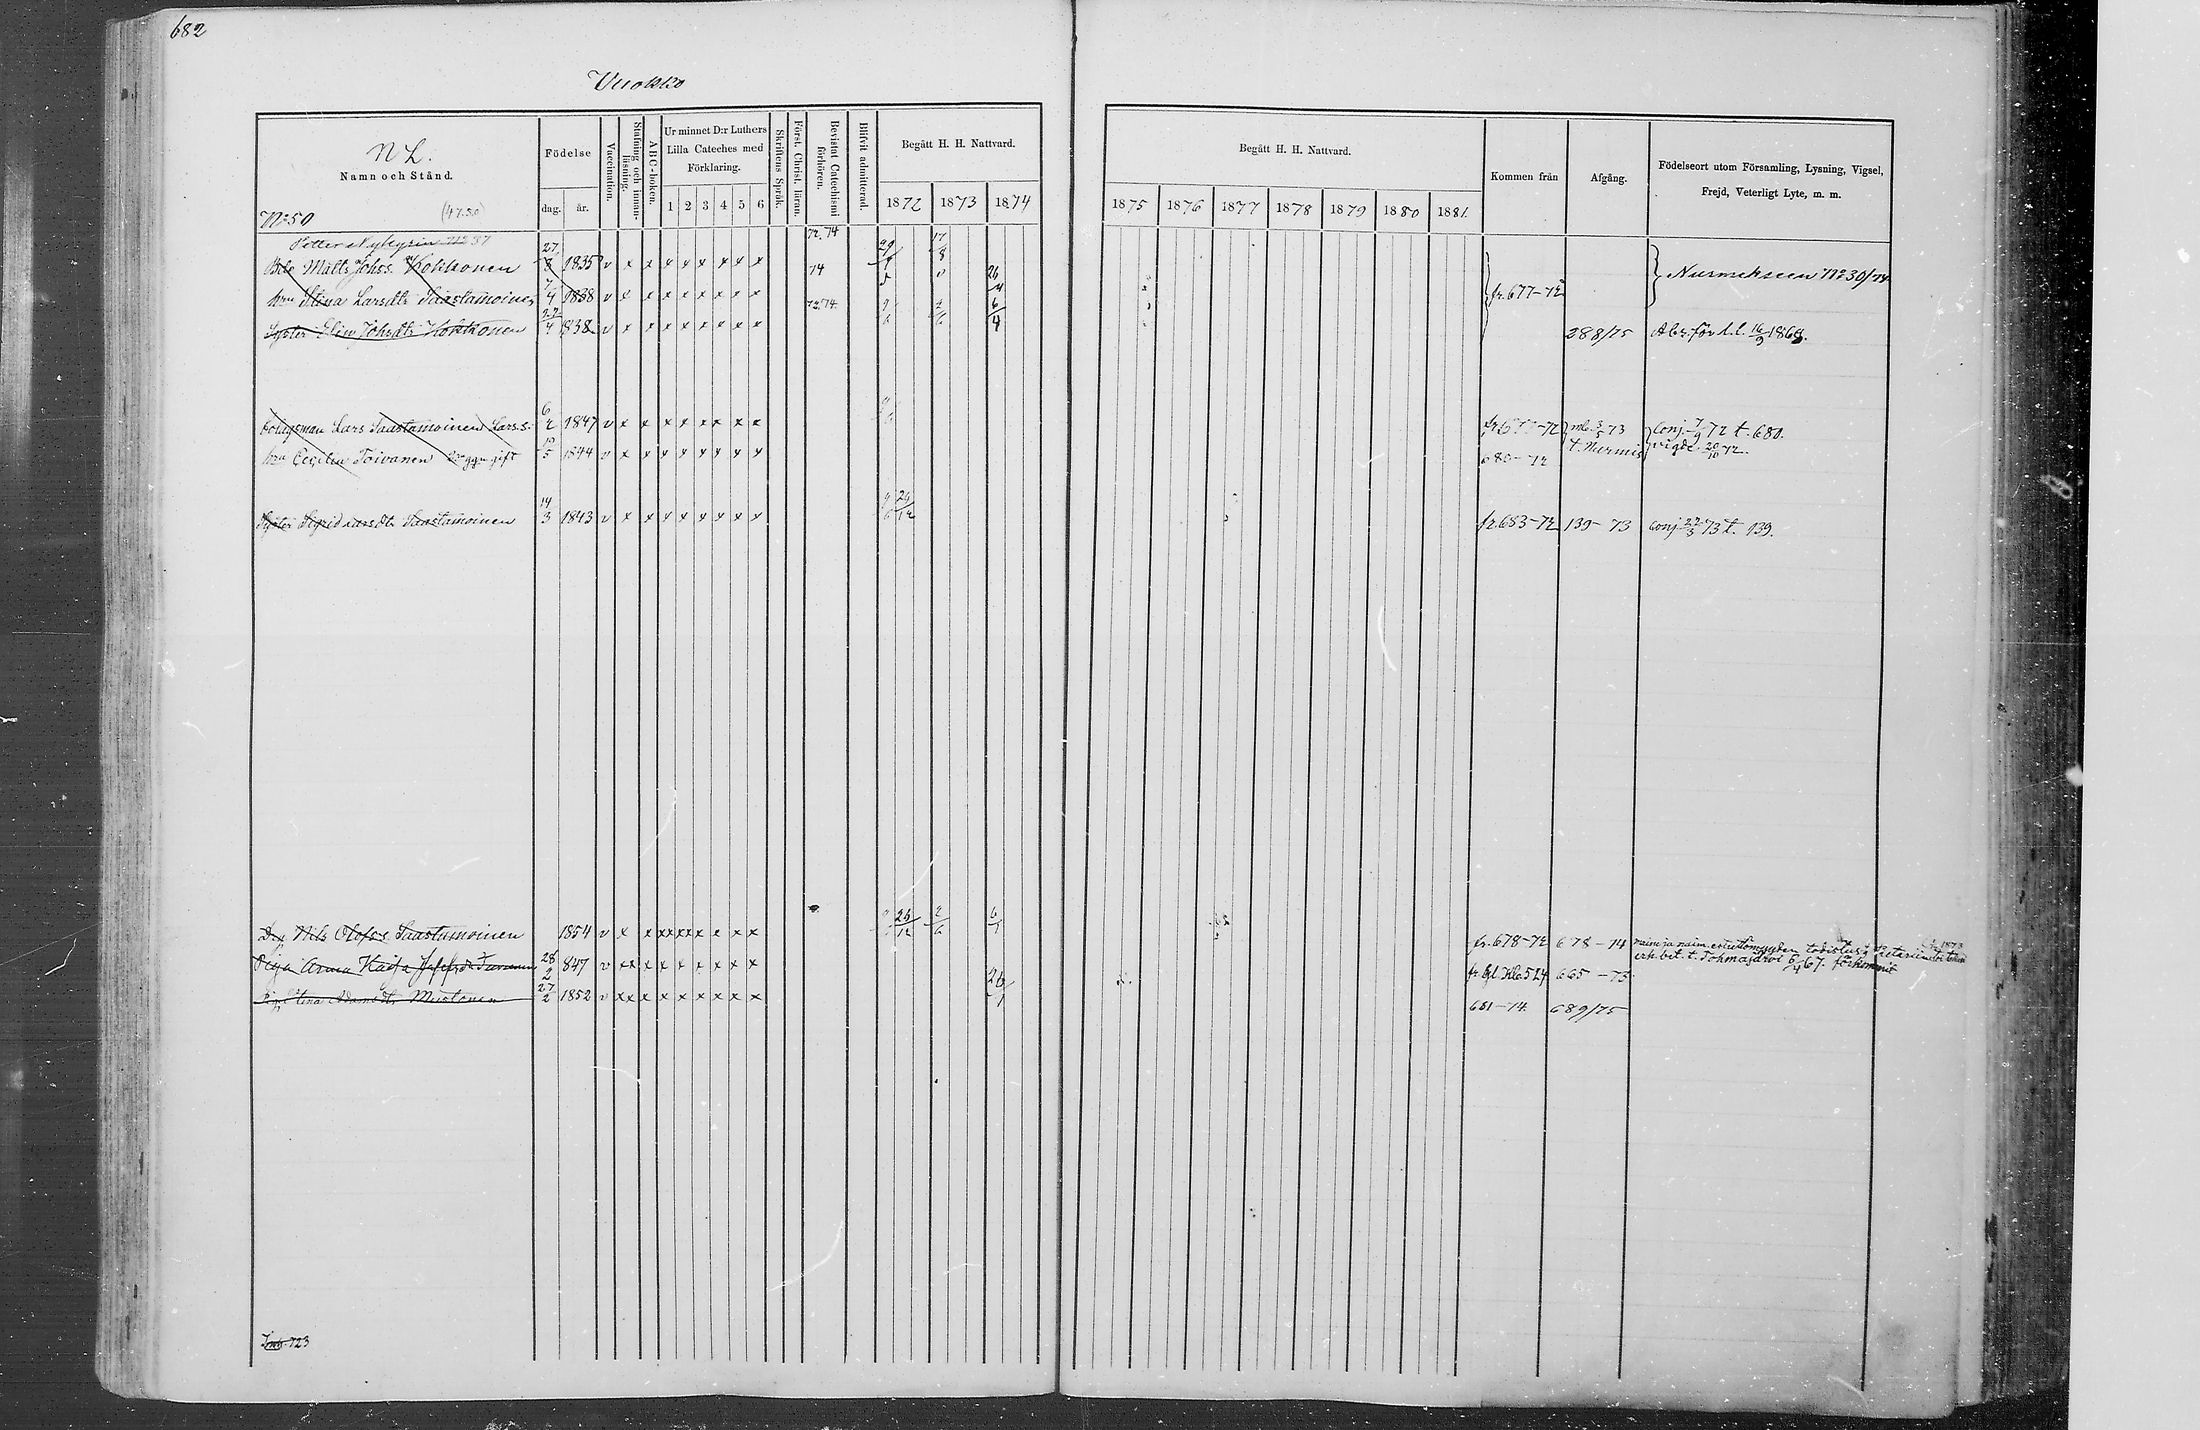 682
Vuokko
N L.
Namn och Stånd.
Födelse
dag. år.
Vaccination.
Stafning och innanläsning.
ABC-boken.
Ur minnet D:r Luthers Lilla Cateches med Förklaring.
1 2 3 4 5 6
Skriftens Språk.
Först. Christ. läran.
Bevistat Catechismi förhören.
Blifvit admitterad.
Begått H. H. Nattvard.
1872 1873 1874
Begått H. H. Nattvard.
1875 1876 1877 1878 1879 1880 1881
Kommen från
Afgång.
Födelseort utom Församling, Lysning, Vigsel,
Frejd, Veterligt Lyte, m. m.
No 50 (47.50)
Petter 72.74 17/8
Matts Johss. Kokkonen 27/8 1835 v x x x x x x x x 74 Nurmekseen No 30/74
hru Stina Larsdtr Saastamoinen 7/4 1838 v x x x x x x x x 72.74 26/4 fr. 677-72
Syster Elin Johsdtr Kokkonen 27/4 1838 v x x x x x x x x 6/4 288/75 Abs. för l.l. 16/9 1869.
bolagsman Lars Saastamoinen Larss. 6/2 1847 v x x x x x x x x fr. 677-72 mb. 3/5 73 conj. 7/9 72 t. 680.
hru Cecilia Toivanen gift 10/5 1844 v x x x x x x x x 680-72 t. Nurmis vigde 20/10 72.
Syster Sigrid Larsdtr Saastamoinen 14/3 1843 v x x x x x x x x 26/12 fr. 683-72 139-73 conj. 73 t. 139.
Dr. Nils Olofss. Saastamoinen 1854 v x x x x x x x x 26/12 2/6 fr. 678-72 678-74
Piga Anna Kaisa 28/2 847 v x x x x x x x x 665-73 t. Tohmajärvi 67. förkommit
Stina Adamsdtr Mustonen 27/2 1852 v x x x x x x x x 681-74 689/75
723